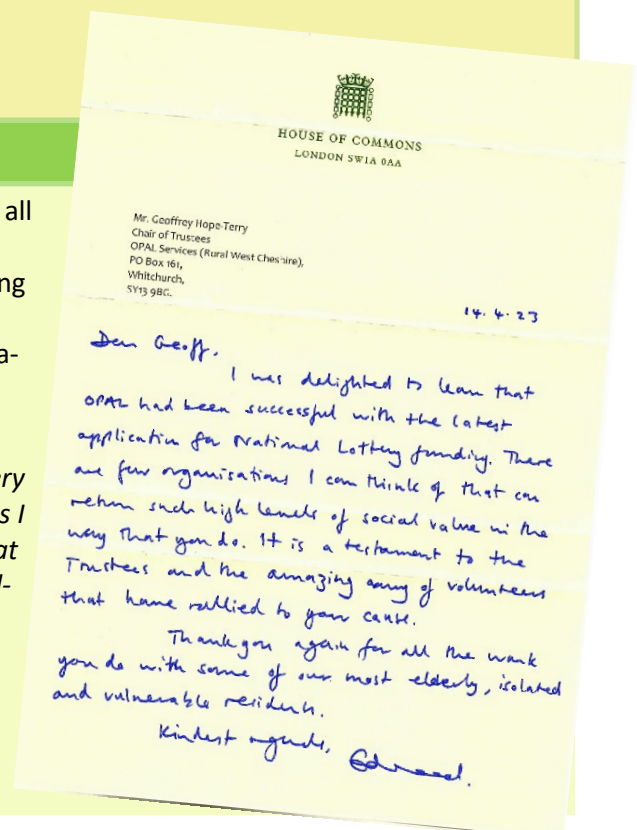 all
ng
a-
ery
s I
at
d-
HOUSE OF COMMONS
LONDON SW1A 0AA
Mr. Geoffrey Hope-Terry
Chair of Trustees
OPAL Services (Rural West Cheshire),
PO Box 161,
Whitchurch,
SY13 9BG.
14.4.23
Dear Geoff.
I was delighted to learn that
OPAL had been successful with the latest
application for National Lottery funding. There
are few organisations I can think of that can
return such high levels of social value in the
way that you do. It is a testament to the
Trustees and the amazing army of volunteers
that have rallied to your cause.
Thank you again for all the work
you do with some of our most elderly, isolated
and vulnerable residents.
Kindest regards, Edward.